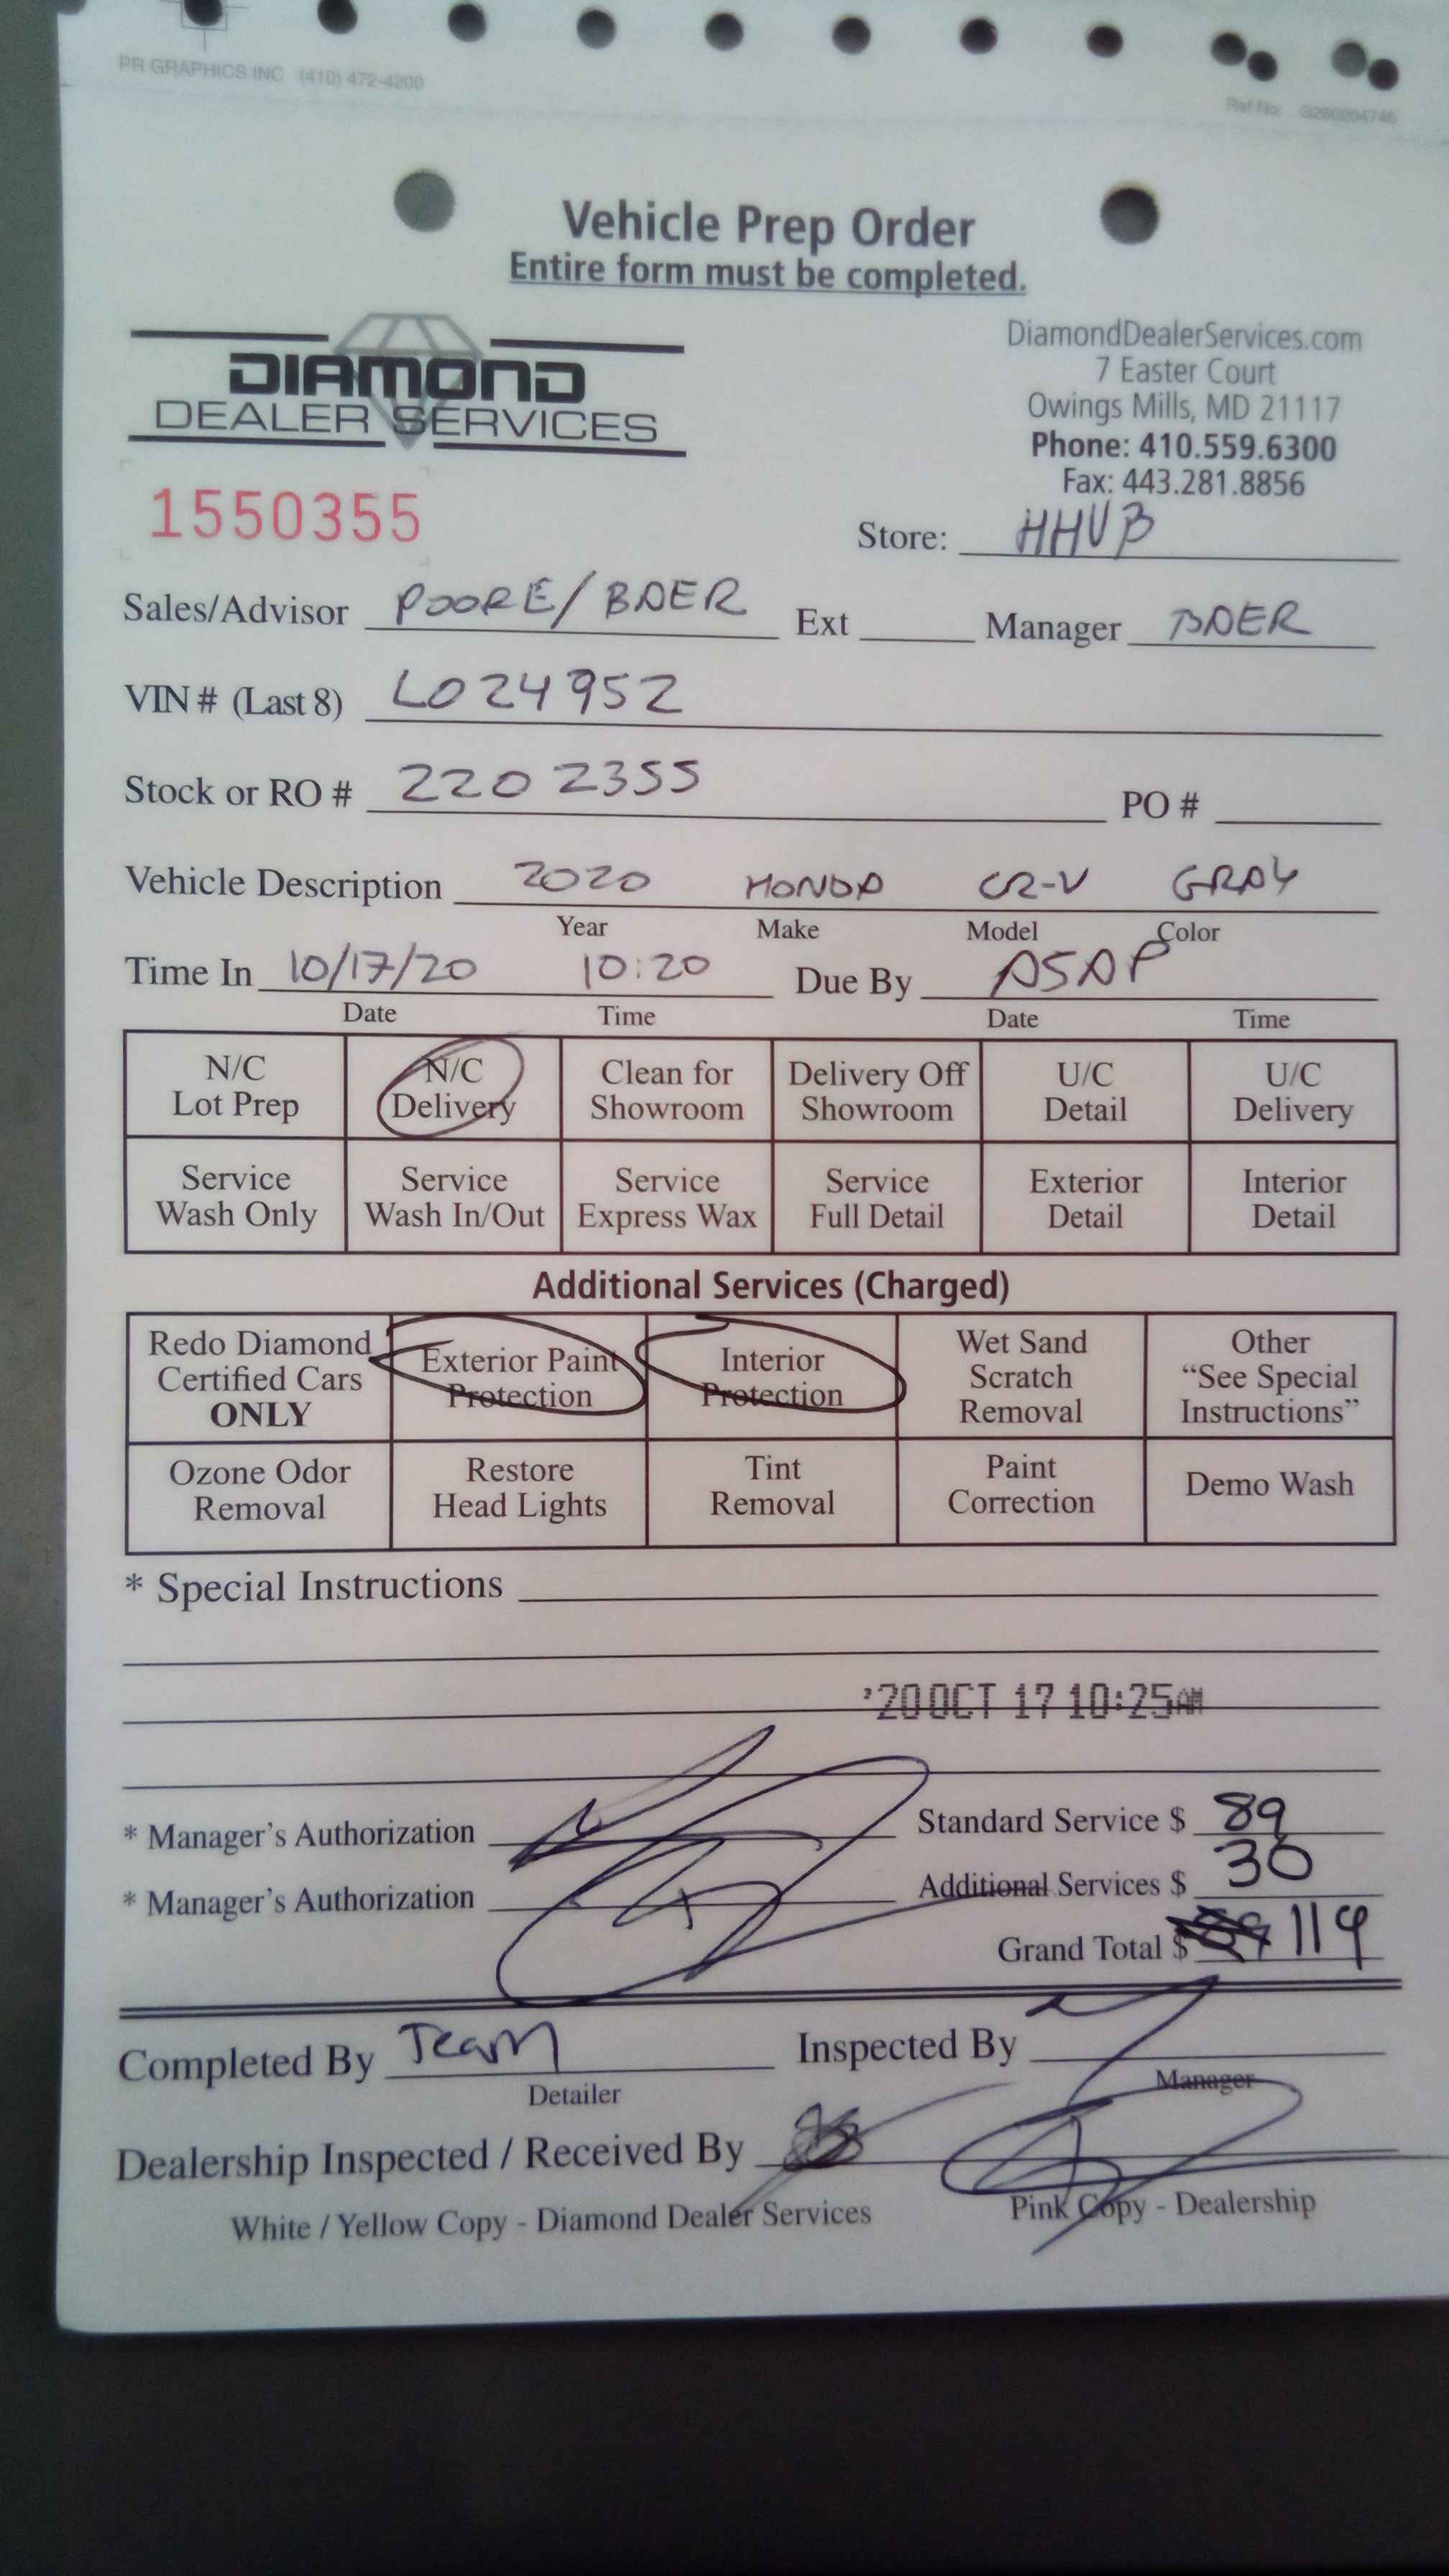 PR GRAPHICS INC (410) 472-4200
Ref No: G260204746
Vehicle Prep Order
Entire form must be completed.
DIAMOND
DEALER SERVICES
DiamondDealerServices.com
7 Easter Court
Owings Mills, MD 21117
Phone: 410.559.6300
Fax: 443.281.8856
1550355
Store: HHVB
Sales/Advisor POORE/BAER Ext Manager BAER
VIN # (Last 8) L024952
Stock or RO # 2202355 PO #
Vehicle Description 2020 HONDA CR-V GRAY
Year Make Model Color
Time In 10/17/20 10:20 Due By ASAP
Date Time Date Time
N/C Lot Prep N/C Delivery Clean for Showroom Delivery Off Showroom U/C Detail U/C Delivery
Service Wash Only Service Wash In/Out Service Express Wax Service Full Detail Exterior Detail Interior Detail
Additional Services (Charged)
Redo Diamond Certified Cars ONLY Exterior Paint Protection Interior Protection Wet Sand Scratch Removal Other "See Special Instructions"
Ozone Odor Removal Restore Head Lights Tint Removal Paint Correction Demo Wash
* Special Instructions
'20 OCT 17 10:25AM
* Manager's Authorization Standard Service $ 89
* Manager's Authorization Additional Services $ 30
Grand Total $ 119
Completed By Team Inspected By
Detailer Manager
Dealership Inspected / Received By
White / Yellow Copy - Diamond Dealer Services Pink Copy - Dealership